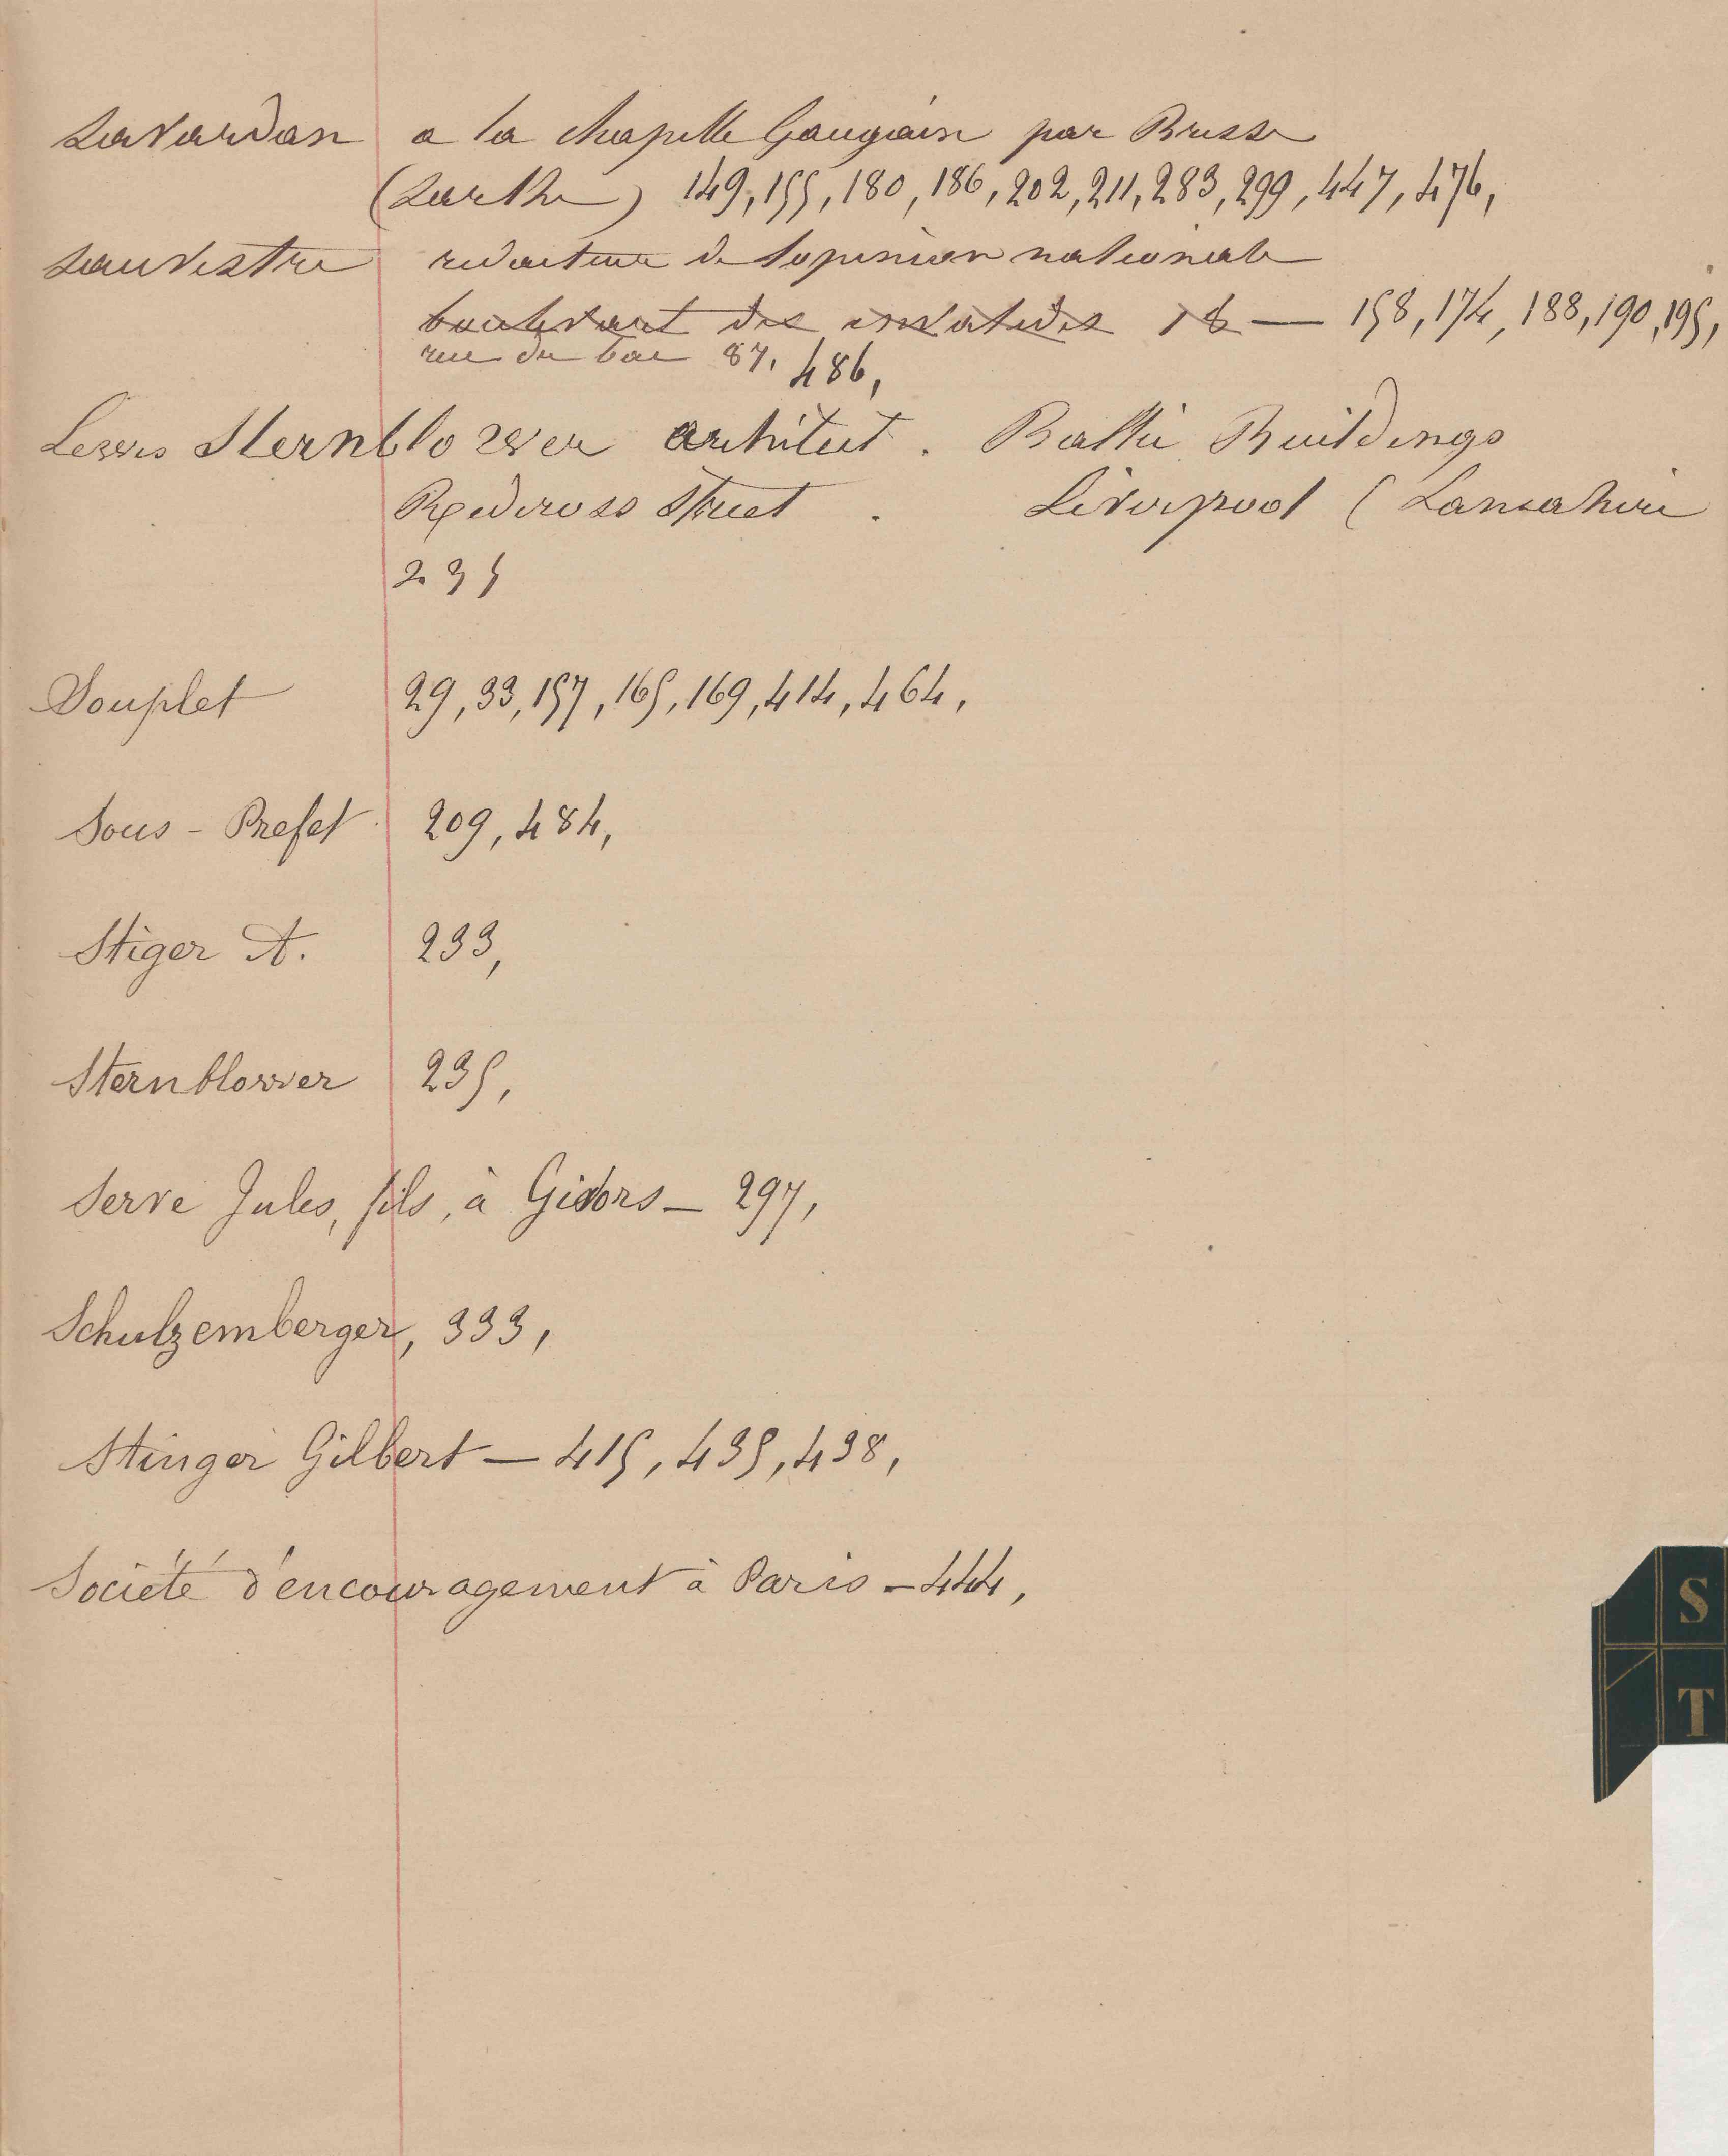 Savardan a la chapelle Gaugain par Besse
(Sarthe) 149, 155, 180, 186, 202, 211, 283, 299, 447, 476,
Sauvestre redacteur de lopinion nationale
boulevart des invalides 18 — 158, 174, 188, 190, 195,
rue du bac 87. 486,
Lewis Sternblower architect. Baltic Buildings
Redcross Street. Liverpool (Lancashire
235
Souplet 29, 33, 157, 165, 169, 414, 464,
Sous-Prefet 209, 484,
Stiger A. 233,
Sternblower 235,
Serve Jules, fils, à Gisors — 297,
Schulzemberger, 333,
Stinger Gilbert — 415, 435, 438,
Société d'encouragement à Paris — 444,
S
T